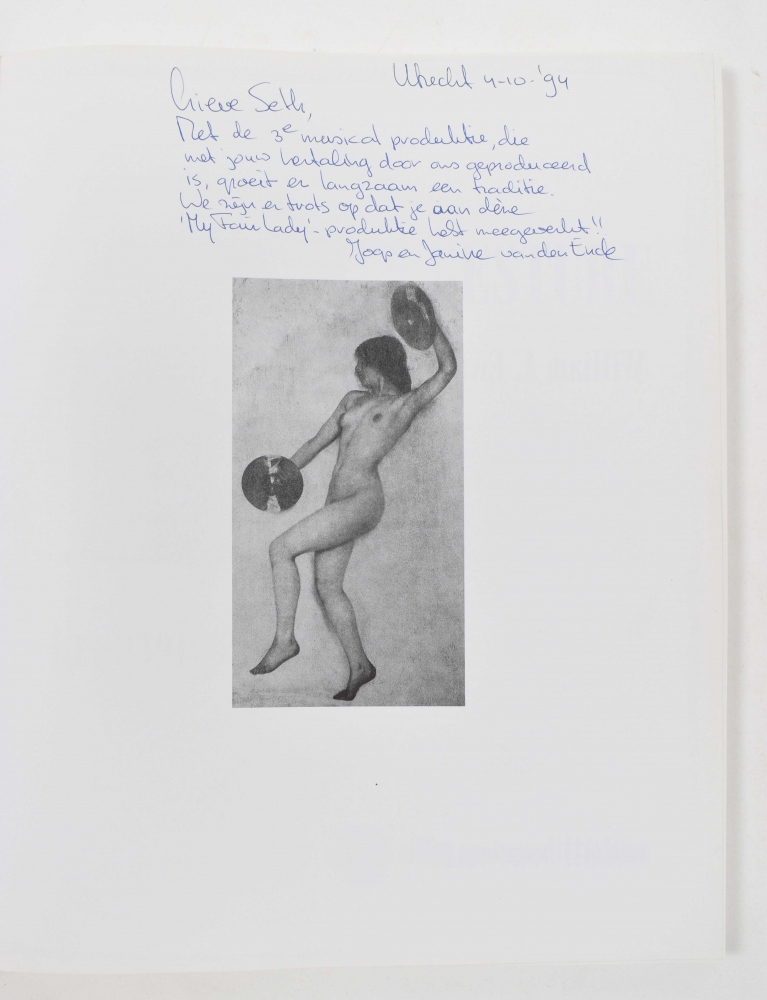 Utrecht 4-10-'94
Lieve Seth,
Met de 3e musical produktie, die
met jouw vertaling door ons geproduceerd
is, groeit er langzaam een traditie.
We zijn er trots op dat je aan déze
'My Fair Lady'-produktie hebt meegewerkt!!
Joop en Janine van den Ende